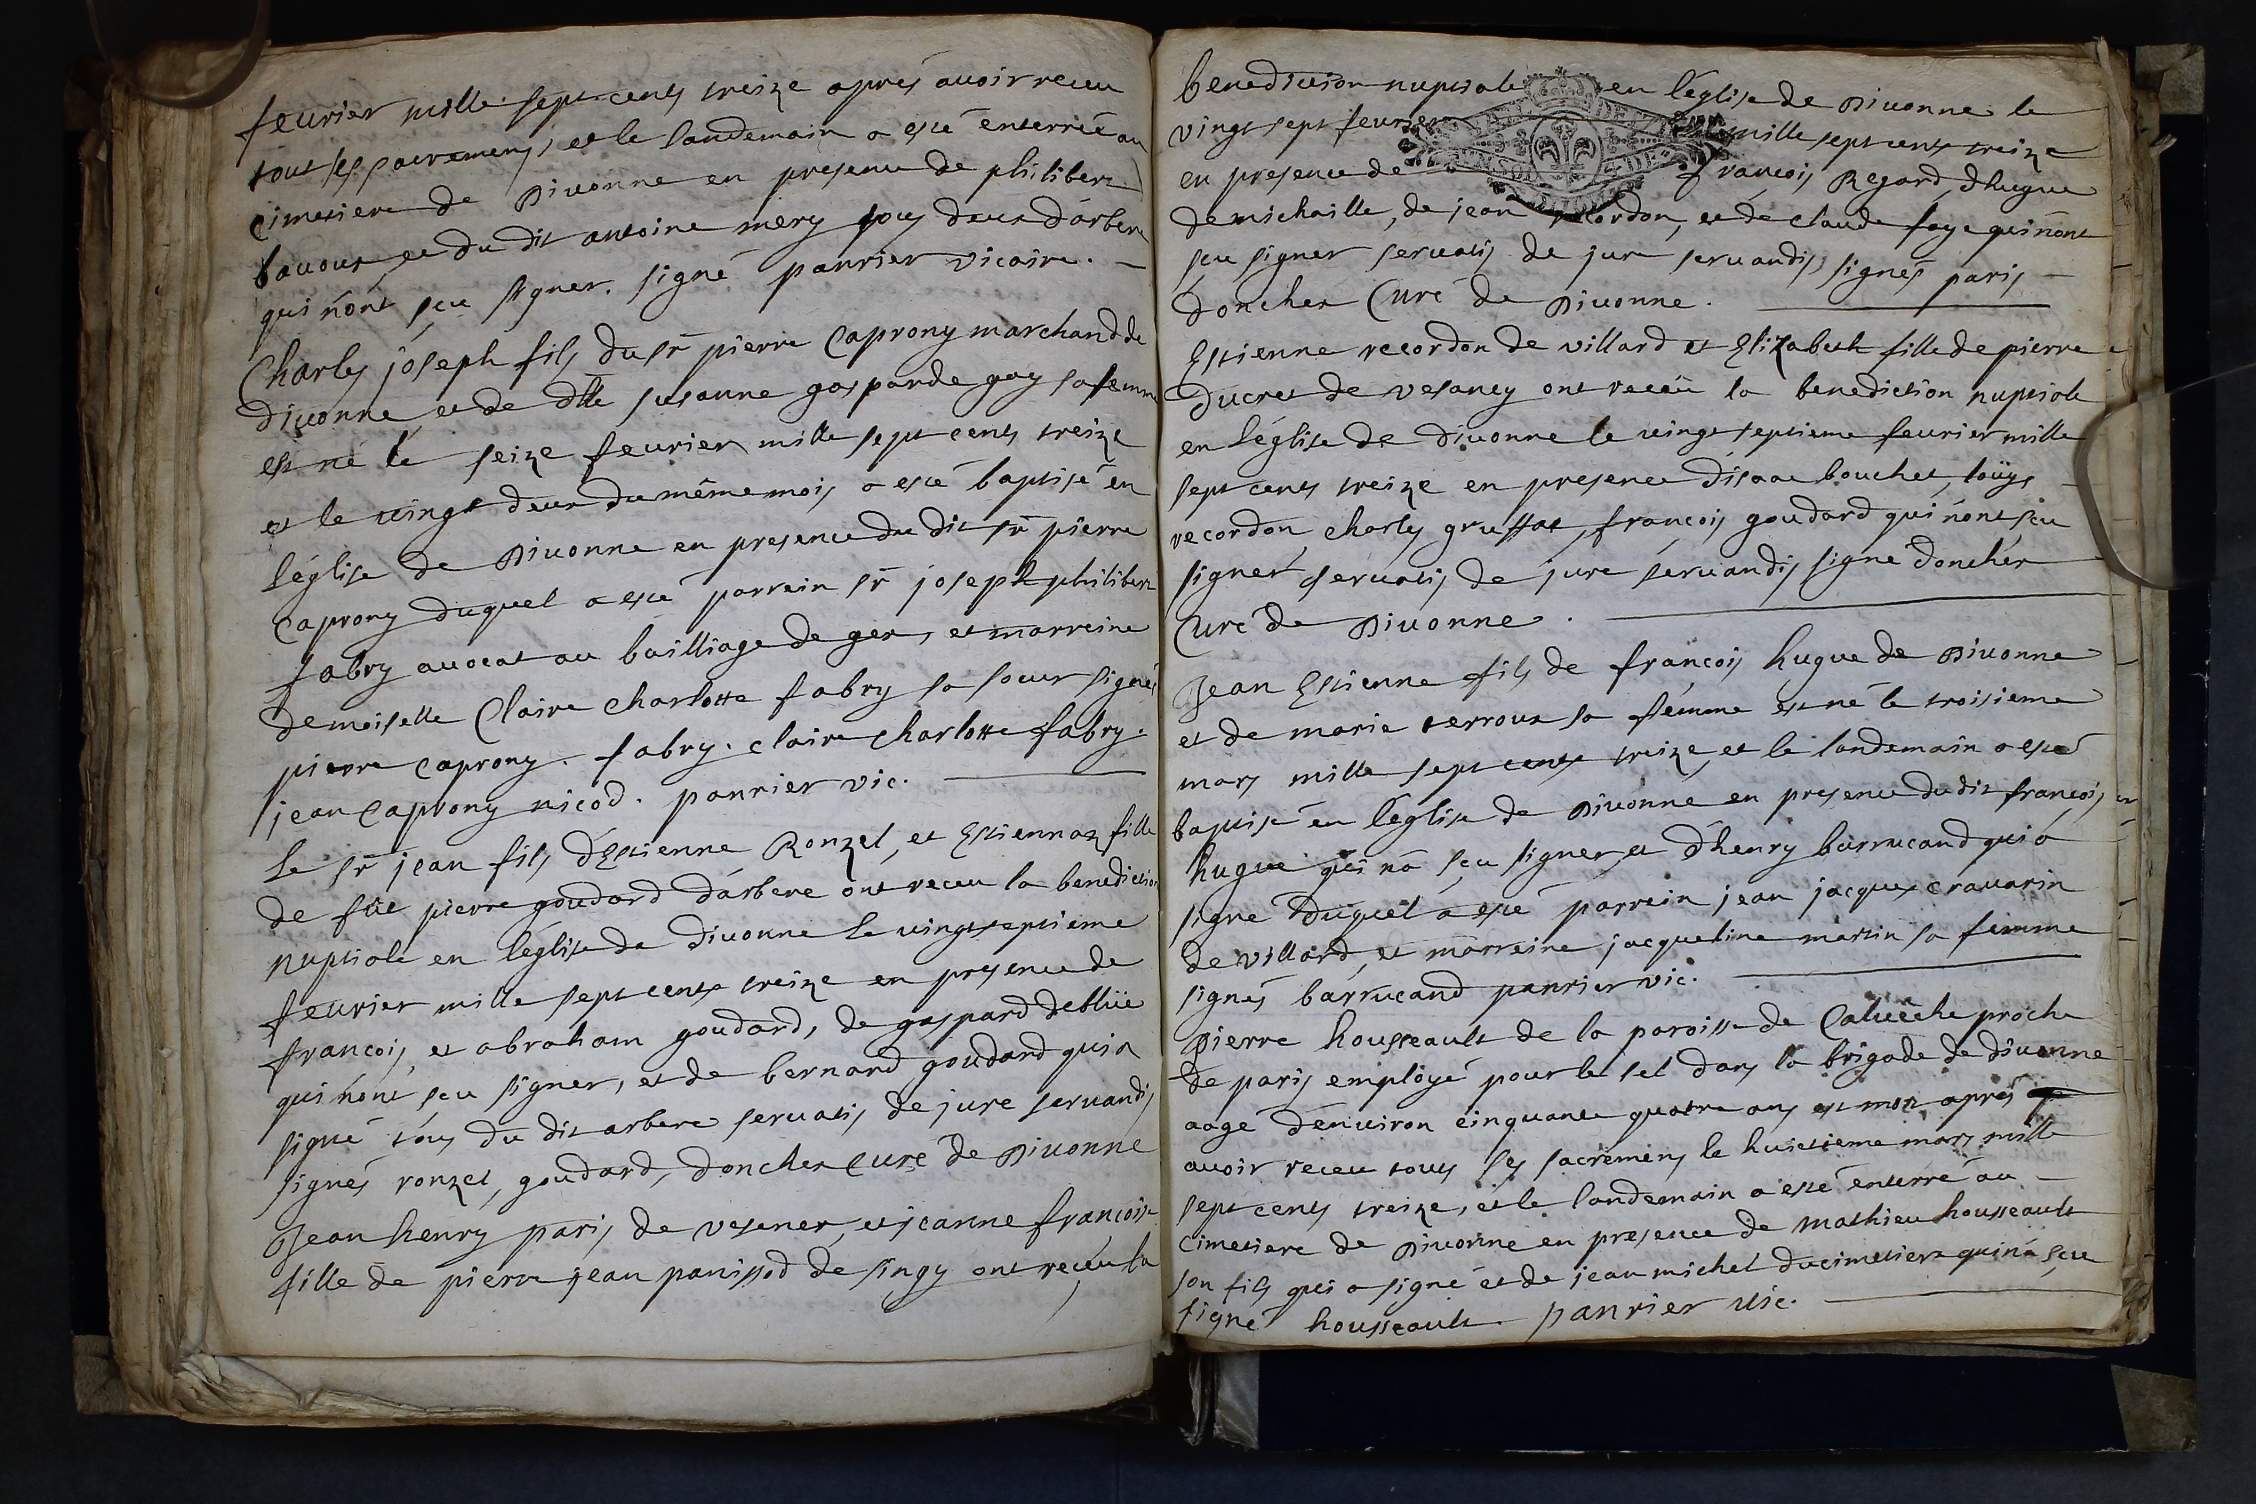 feurier mille sept cents treize aprés auoir receu
tout ses sacremens, et le landemain a esté enterrée au
cimetiere de Diuonne en presence de philibert
bauoux et du dit antoine mery tous deux d'arbere
qui n'ont sçu signer. signé panrier vicaire.
Charles joseph fils du sr pierre Caprony marchand de
diuonne, et de dlle susanne gasparde gay sa femme
est né le seize feurier mille sept cents treize
et le vingt deux du même mois a esté baptisé en
l'église de Diuonne en presence du dit sr pierre
Caprony duquel a esté parrein sr joseph philibert
fabry auocat au bailliage de gex, et marreine
demoiselle Claire charlotte fabry sa soeur signés
pierre caprony. fabry. claire charlotte fabry.
jean Caprony nicod. panrier vic.
Le sr jean fils d'Estienne Ronzel, et Estiennaz fille
de fût pierre goudard d'arbere ont receu la benediction
nuptiale en l'église de diuonne le vingt septieme
feurier mille sept cents treize en presence de
françois, et abraham goudard, de gaspard deblüe
qui n'ont sçu signer, et de bernard goudard qui a
signé tous du dit arbere seruatis de jure seruandis
signés ronzel, goudard, donchex Curé de Diuonne
Jean henry paris de vesener, et jeanne françoise
fille de pierre jean panissod de singy ont receu la
benediction nuptiale en l'église de Diuonne le
vingt sept feurier mille sept cents treize
en presence de françois Regard, d'hugue
de michaille, de jean recordon, et de claude faye qui n'ont
sçu signer seruatis de jure seruandis, signés paris
donchex Curé de Diuonne.
Estienne recordon de villard et Elizabeth fille de pierre
ducret de vesancy ont receu la benediction nuptiale
en l'église de diuonne le vingt septieme feurier mille
sept cents treize en presence d'isaac bouchet, loüys
recordon, charles gruffat, françois goudard qui n'ont sçu
signer seruatis de jure seruandis signe donchex
Curé de Diuonne.
Jean Estienne fils de françois hugue de Diuonne
et de marie terroux sa femme est né le troisieme
mars mille sept cents treize, et le landemain a esté
baptisé en l'église de Diuonne en presence du dit françois
hugue qui n'a sçu signer, et d'henry barrucand qui a
signé duquel a esté parrein jean jacques crauarin
de villard, et marreine jacqueline martin sa femme
signés barrucand panrier vic.
Pierre housseault de la paroisse de Caluêche proche
de paris employé pour le sel dans la brigade de diuonne
aagé d'enuiron cinquante quatre ans est mort aprés
auoir receu tous ses sacremens le huictieme mars mille
sept cents treize, et le landemain a esté enterré au
cimetiere de Diuonne en presence de mathieu housseault
son fils qui a signé et de jean michel du cimetiere qui n'a sçu
signé housseault panrier vic.